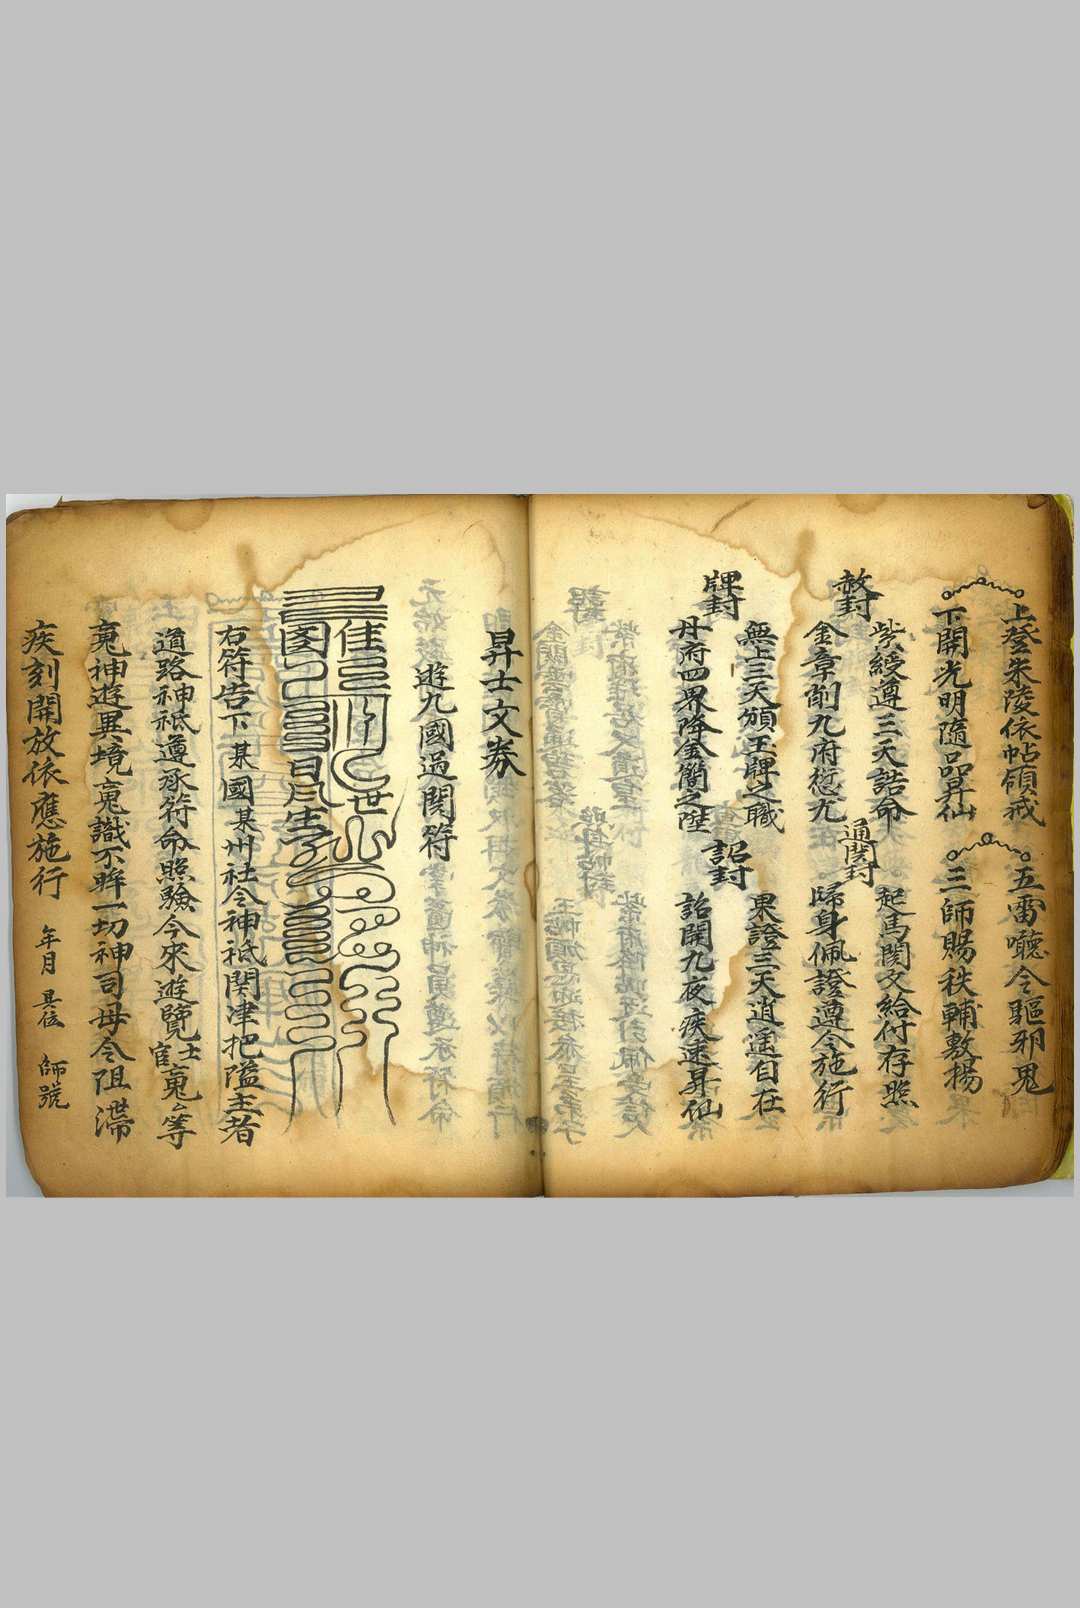 上登朱陵依帖領戒
下開光明隨品昇仙
五雷聽令驅邪鬼
三師賜秩輔敷揚
赦封
紫綬遵三天誥命
金章削九府愆尤
通関封
起馬関文給付存照
歸身佩證遵令施行
牌封
無上三天頒玉牌之職
丹府四界降金簡之陞
詔封
果證三天逍遥自在
詔開九夜疾速昇仙
昇士文券
遊九國過関符
右符告下某國某州社令神祗関津把隘主者
道路神祗遵承符命照驗今來遊覽士官䰟等
䰟神遊異境䰟識不昧一切神司毋令阻滯
疾刻開放依應施行 年月 具位 師號